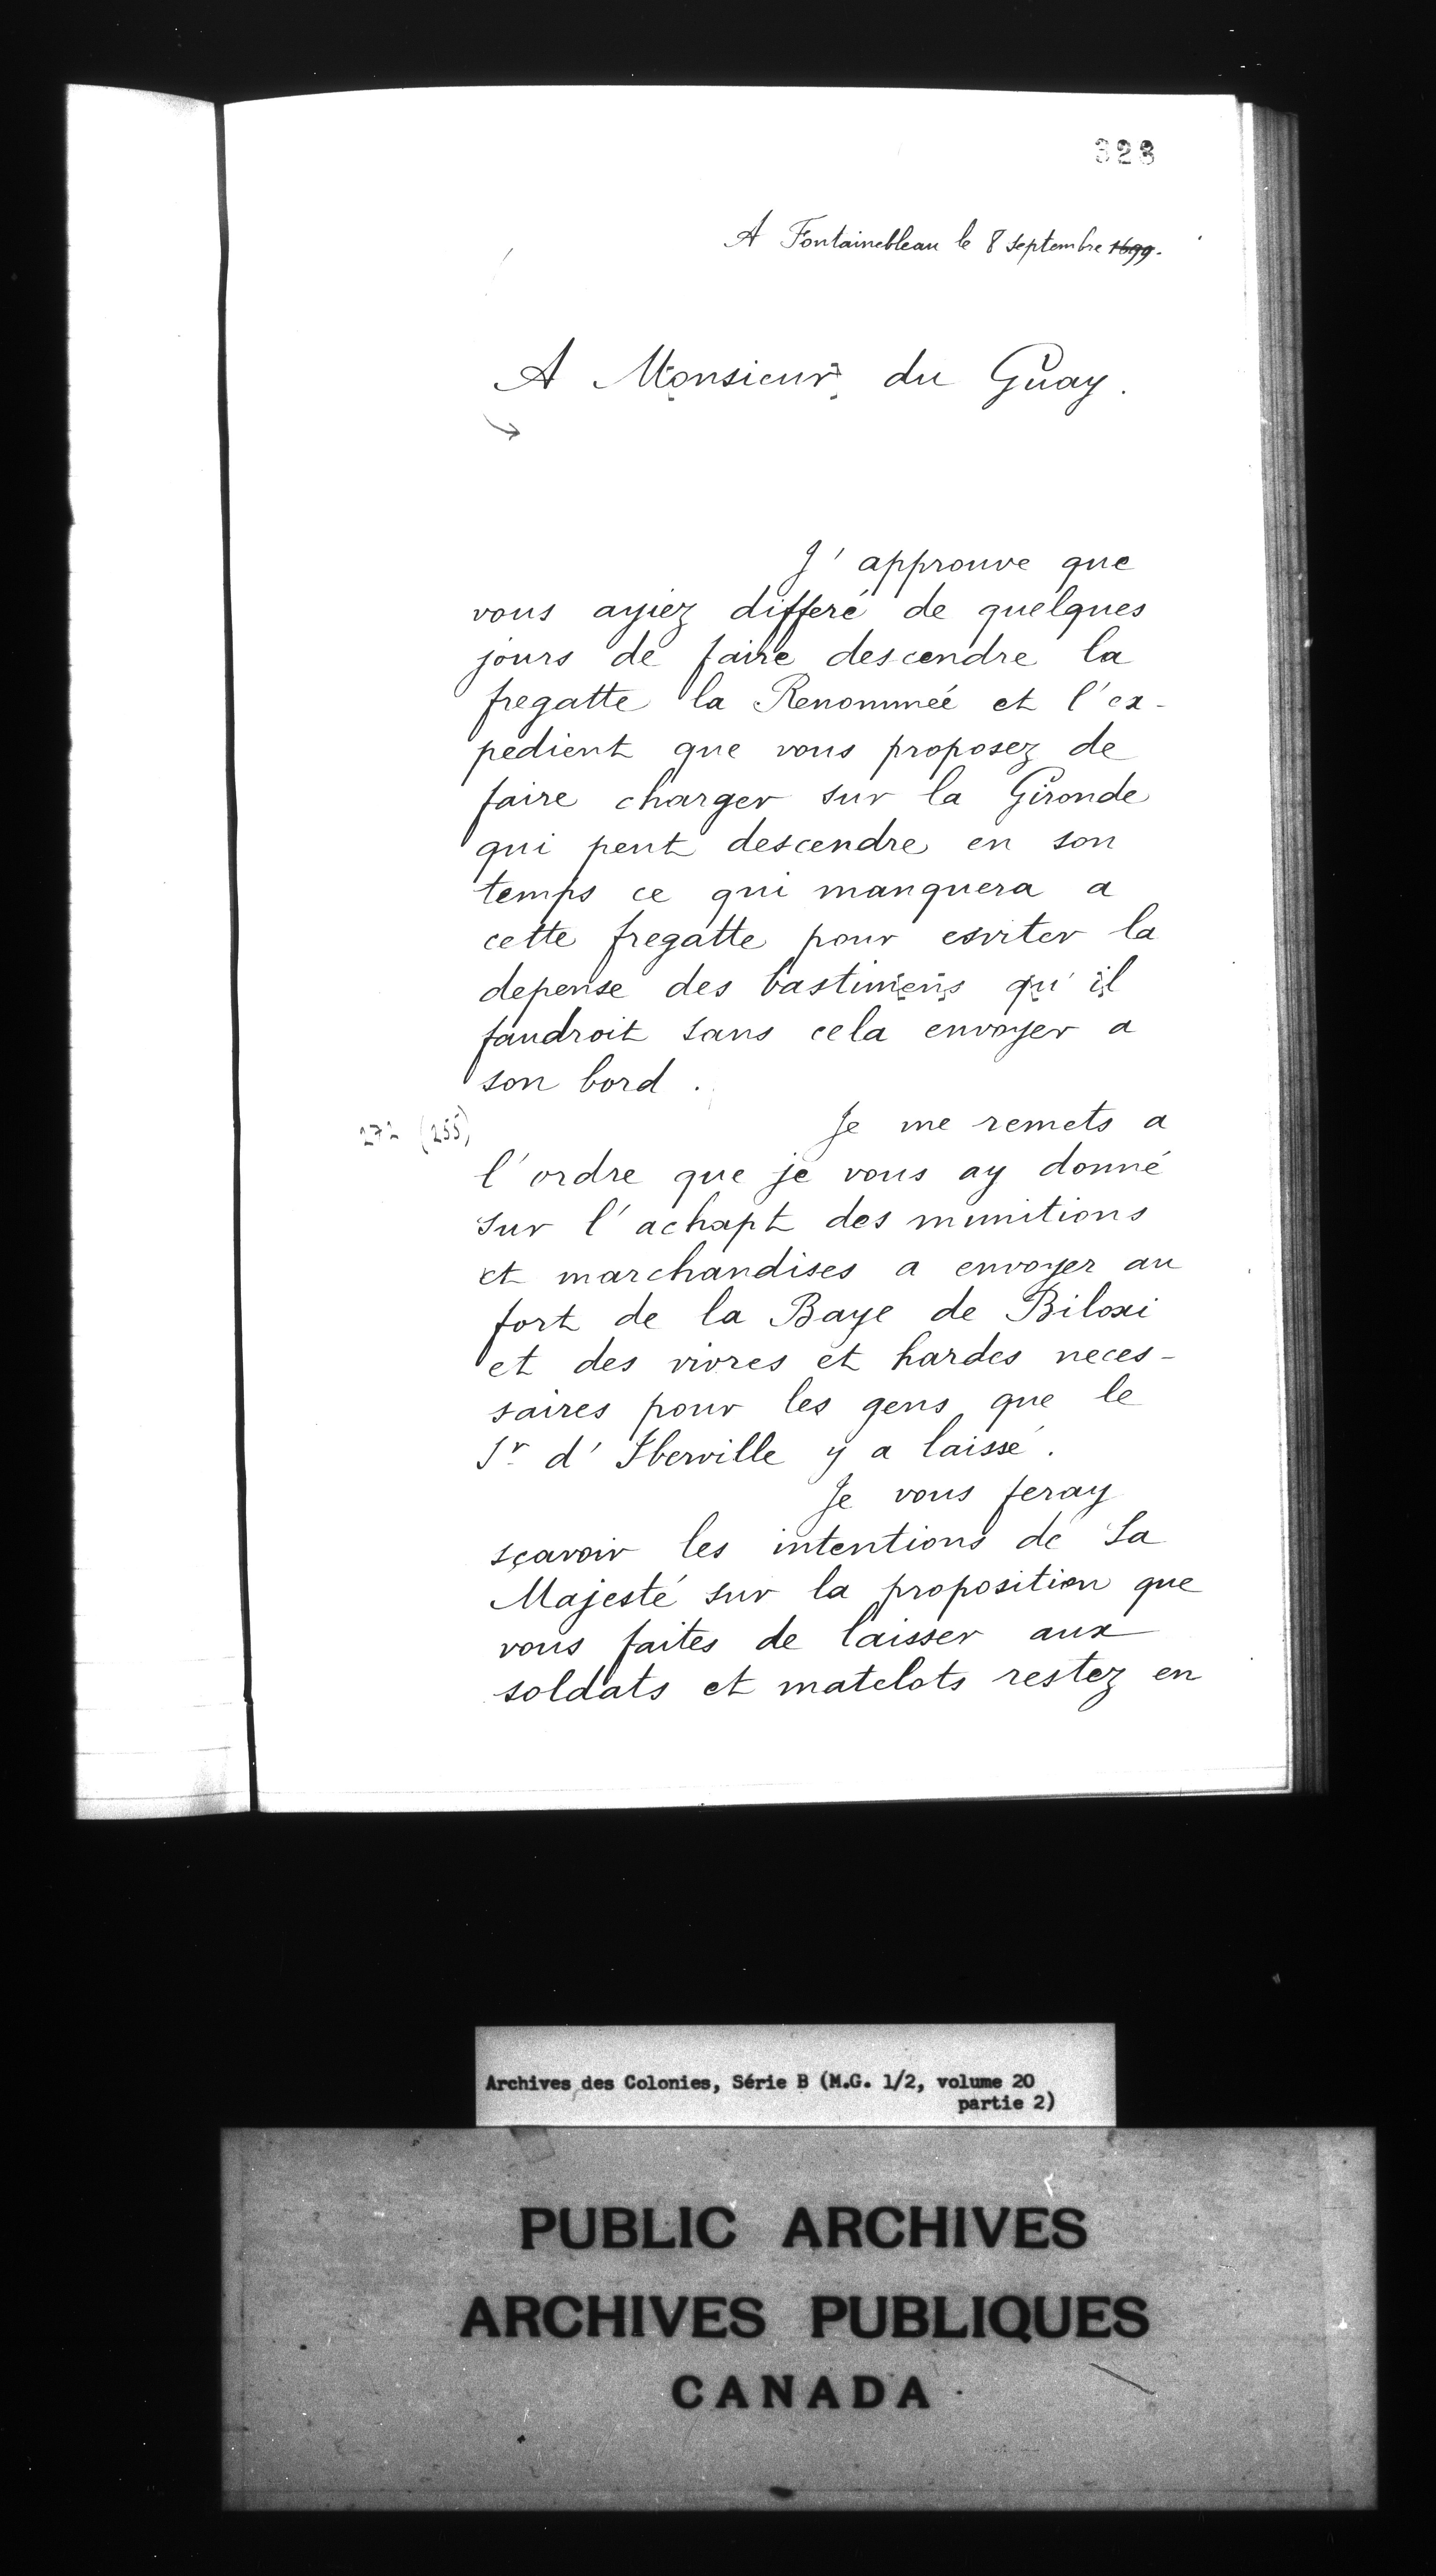 328
A Fontainebleau le 8 septembre 1699.
A Monsieur du Guay.
J'approuve que
vous ayiez differé de quelques
jours de faire descendre la
fregatte la Renommée et l'ex-
pedient que vous proposez de
faire charger sur la Gironde
qui peut descendre en son
temps ce qui manquera a
cette fregatte pour esviter la
depense des bastimens qu'il
faudroit sans cela envoyer a
son bord.
272 (255)
Je me remets a
l'ordre que je vous ay donné
sur l'achapt des munitions
et marchandises a envoyer au
fort de la Baye de Biloxi
et des vivres et hardes neces-
saires pour les gens que le
Sr d'Iberville y a laissé.
Je vous feray
sçavoir les intentions de Sa
Majesté sur la proposition que
vous faites de laisser aux
soldats et matelots restez en
Archives des Colonies, Série B (M.G. 1/2, volume 20
partie 2)
PUBLIC ARCHIVES
ARCHIVES PUBLIQUES
CANADA